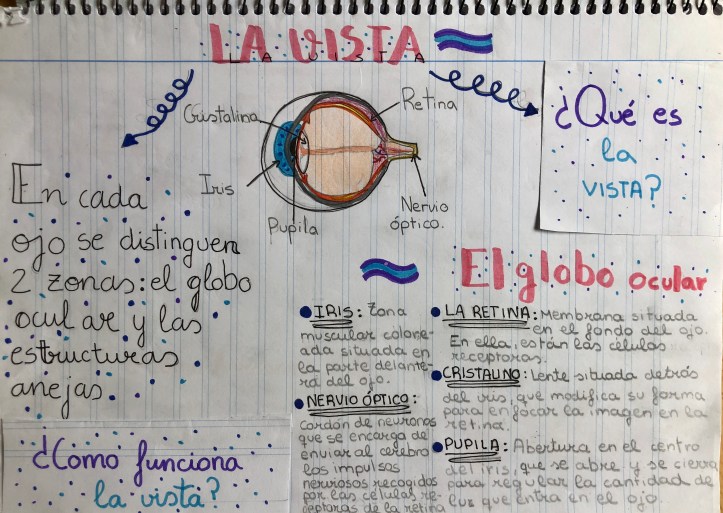 LA VISTA
LA VISTA
Cristalina
Retina
Iris
Pupila
Nervio
óptico.
¿Qué es
la
VISTA?
En cada
ojo se distinguen
2 zonas: el globo
ocular y las
estructuras
anejas.
¿Como funciona
la vista?
El globo ocular
IRIS: Zona
muscular colore-
ada situada en
la parte delante-
ra del ojo.
NERVIO ÓPTICO:
Cordón de neuronas
que se encarga de
enviar al celebro
los impulsos
nerviosos recogidos
por las células re-
ceptoras de la retina
LA RETINA: Membrana situada
en el fondo del ojo.
En ella, están las células
receptoras.
CRISTALINO: Lente situada detrás
del iris, que modifica su forma
para enfocar la imagen en la
retina.
PUPILA: Abertura en el centro
del iris, que se abre y se cierra
para regular la cantidad de
luz que entra en el ojo.